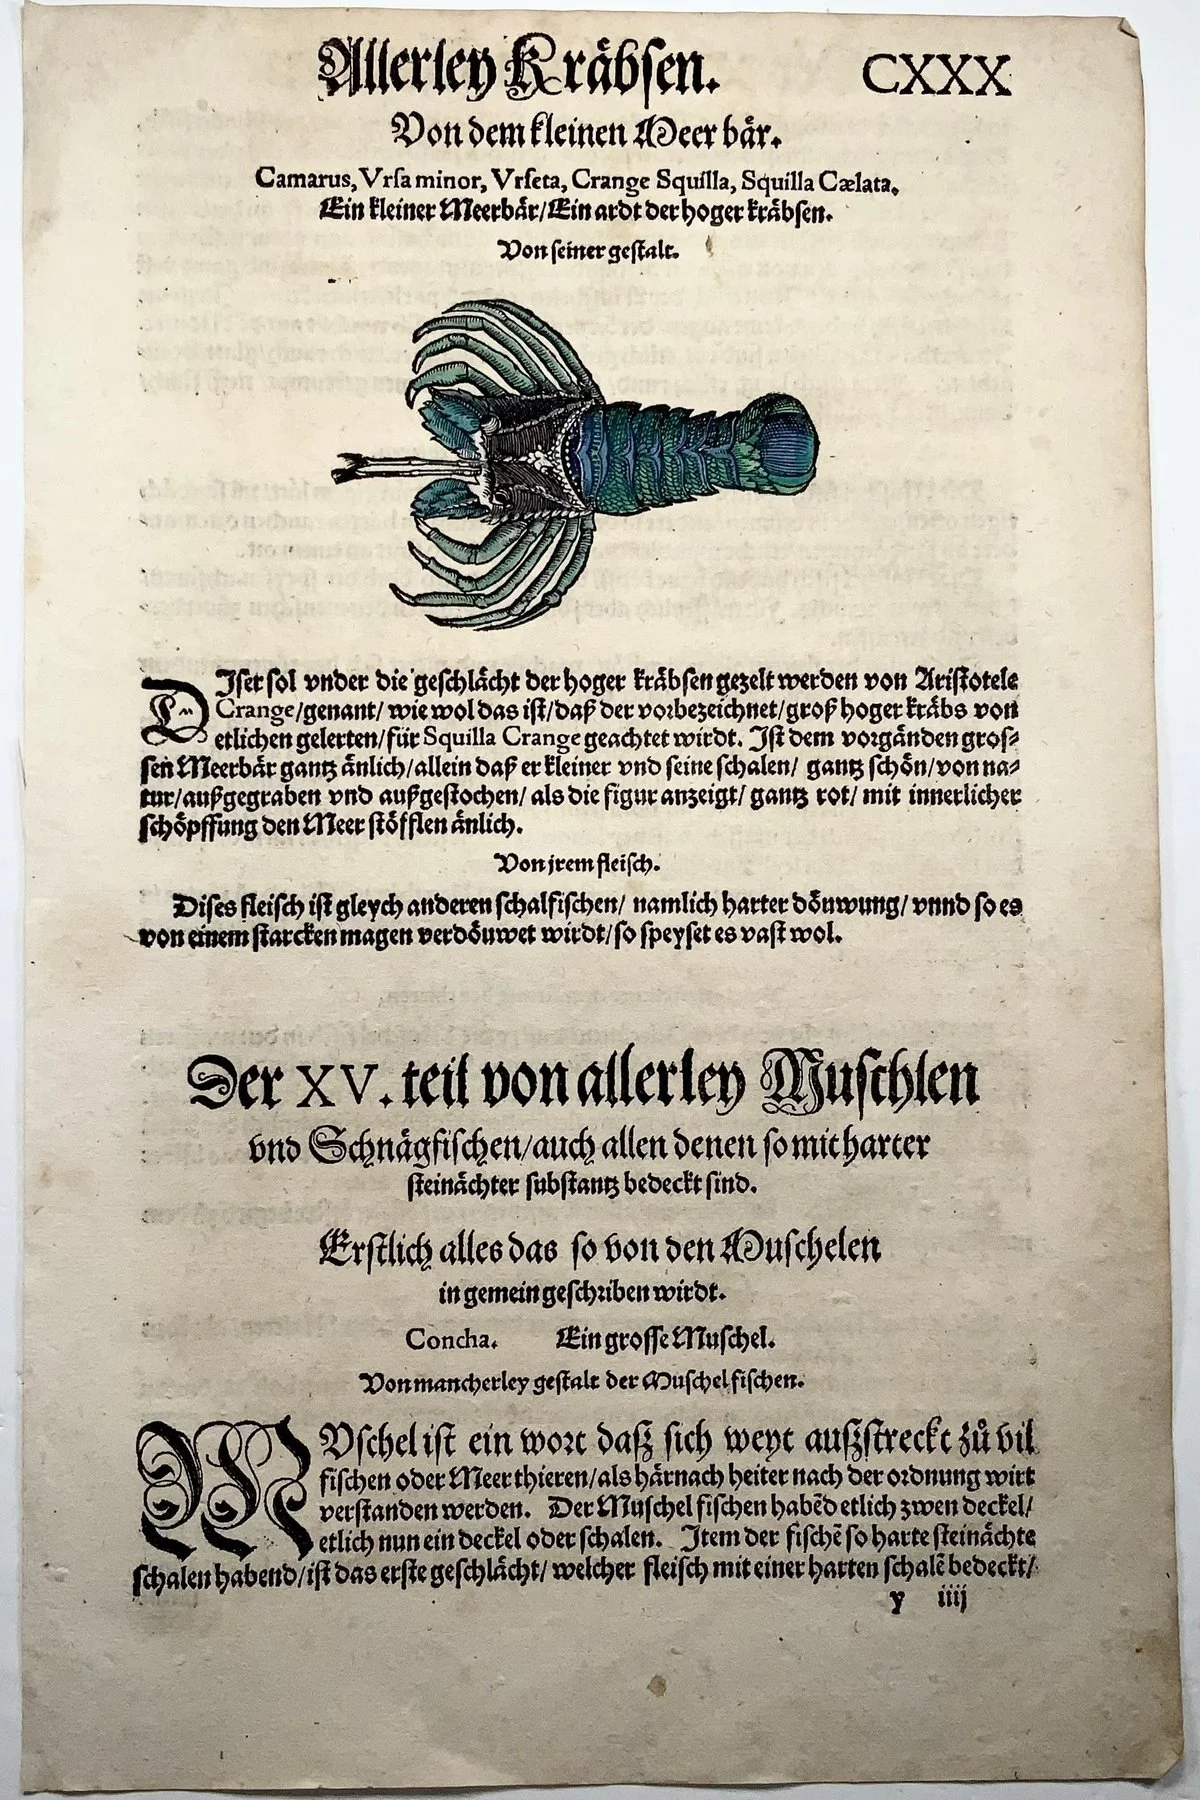 Allerley Kräbsen. CXXX
Von dem kleinen Meer bär.
Camarus, Vrsa minor, Vrseta, Crange Squilla, Squilla Cælata,
Ein kleiner Meerbär/Ein ardt der hoger kräbsen.
Von seiner gestalt.
DIser sol vnder die geschlächt der hoger kräbsen gezelt werden von Aristotele
Crange/genant/ wie wol das ist/daß der vorbezeichnet/groß hoger kräbs von
etlichen gelerten/für Squilla Crange geachtet wirdt. Ist dem vorgänden gros-
sen Meerbär gantz änlich/allein daß er kleiner vnd seine schalen/ gantz schön/von na-
tur/außgegraben vnd außgestochen/ als die figur anzeigt/ gantz rot/ mit innerlicher
schöpffung den Meer stöfflen änlich.
Von jrem fleisch.
Dises fleisch ist gleych anderen schalfischen/ namlich harter döuwung/ vnnd so es
von einem starcken magen verdöuwet wirdt/so speyset es vast wol.
Der XV. teil von allerley Muschlen
vnd Schnägfischen/auch allen denen so mit harter
steinächter substantz bedeckt sind.
Erstlich alles das so von den Muschelen
in gemein geschriben wirdt.
Concha. Ein grosse Muschel.
Von mancherley gestalt der Muschelfischen.
MVschel ist ein wort daß sich weyt außstreckt zů vil
fischen oder Meerthieren/als härnach heiter nach der ordnung wirt
verstanden werden. Der Muschel fischen habēd etlich zwen deckel/
etlich nun ein deckel oder schalen. Item der fischē so harte steinächte
schalen habend/ist das erste geschlächt/ welcher fleisch mit einer harten schalē bedeckt/
y iiij